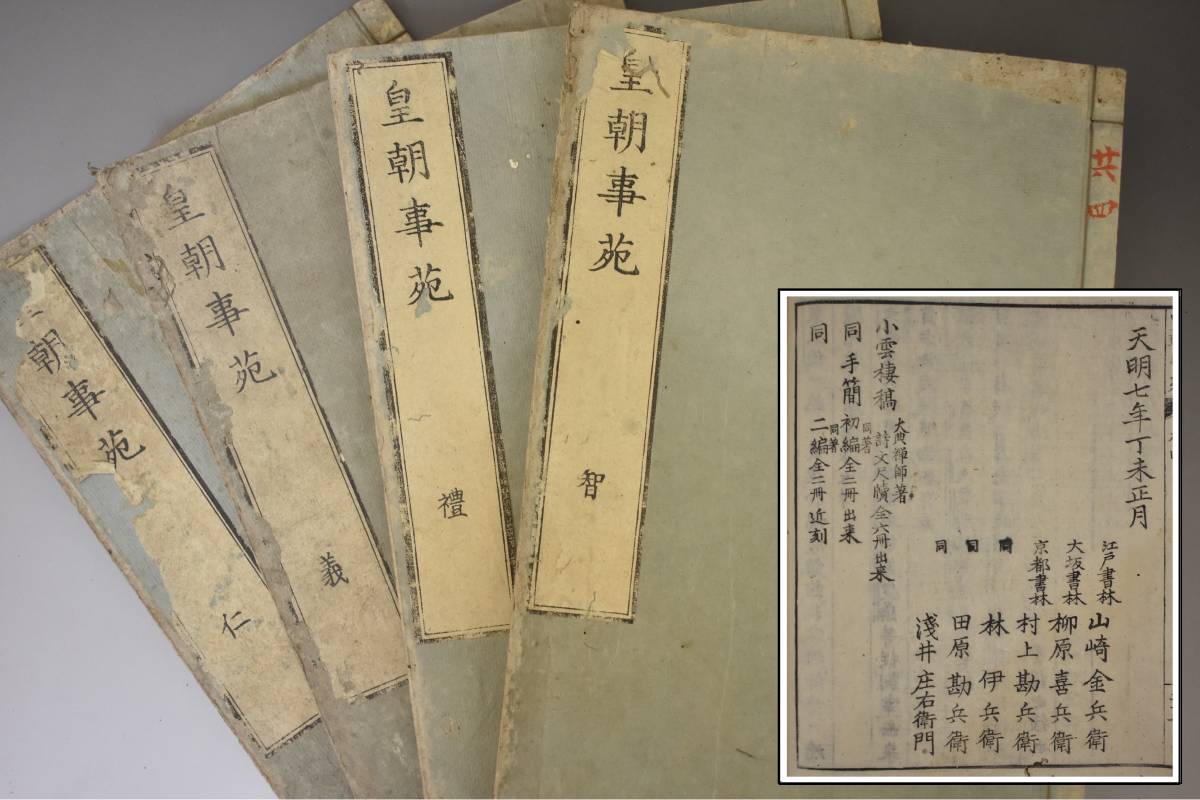 皇朝事苑
智
皇朝事苑
禮
皇朝事苑
義
朝事苑
仁
共四
天明七年丁未正月
江戸書林 山崎金兵衛
大坂書林 柳原喜兵衛
京都書林 村上勘兵衛
同 林伊兵衛
同 田原勘兵衛
同 淺井庄右衛門
小雲棲稿 大典禅師著 詩文尺牘全六冊出来
同手簡 同著 初編全二冊出来
同 同著 二編全二冊近刻